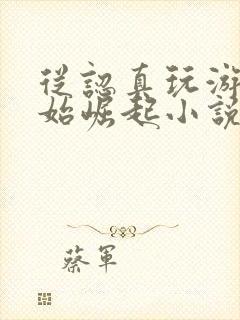 從認真玩游
始崛起小說
蔡軍